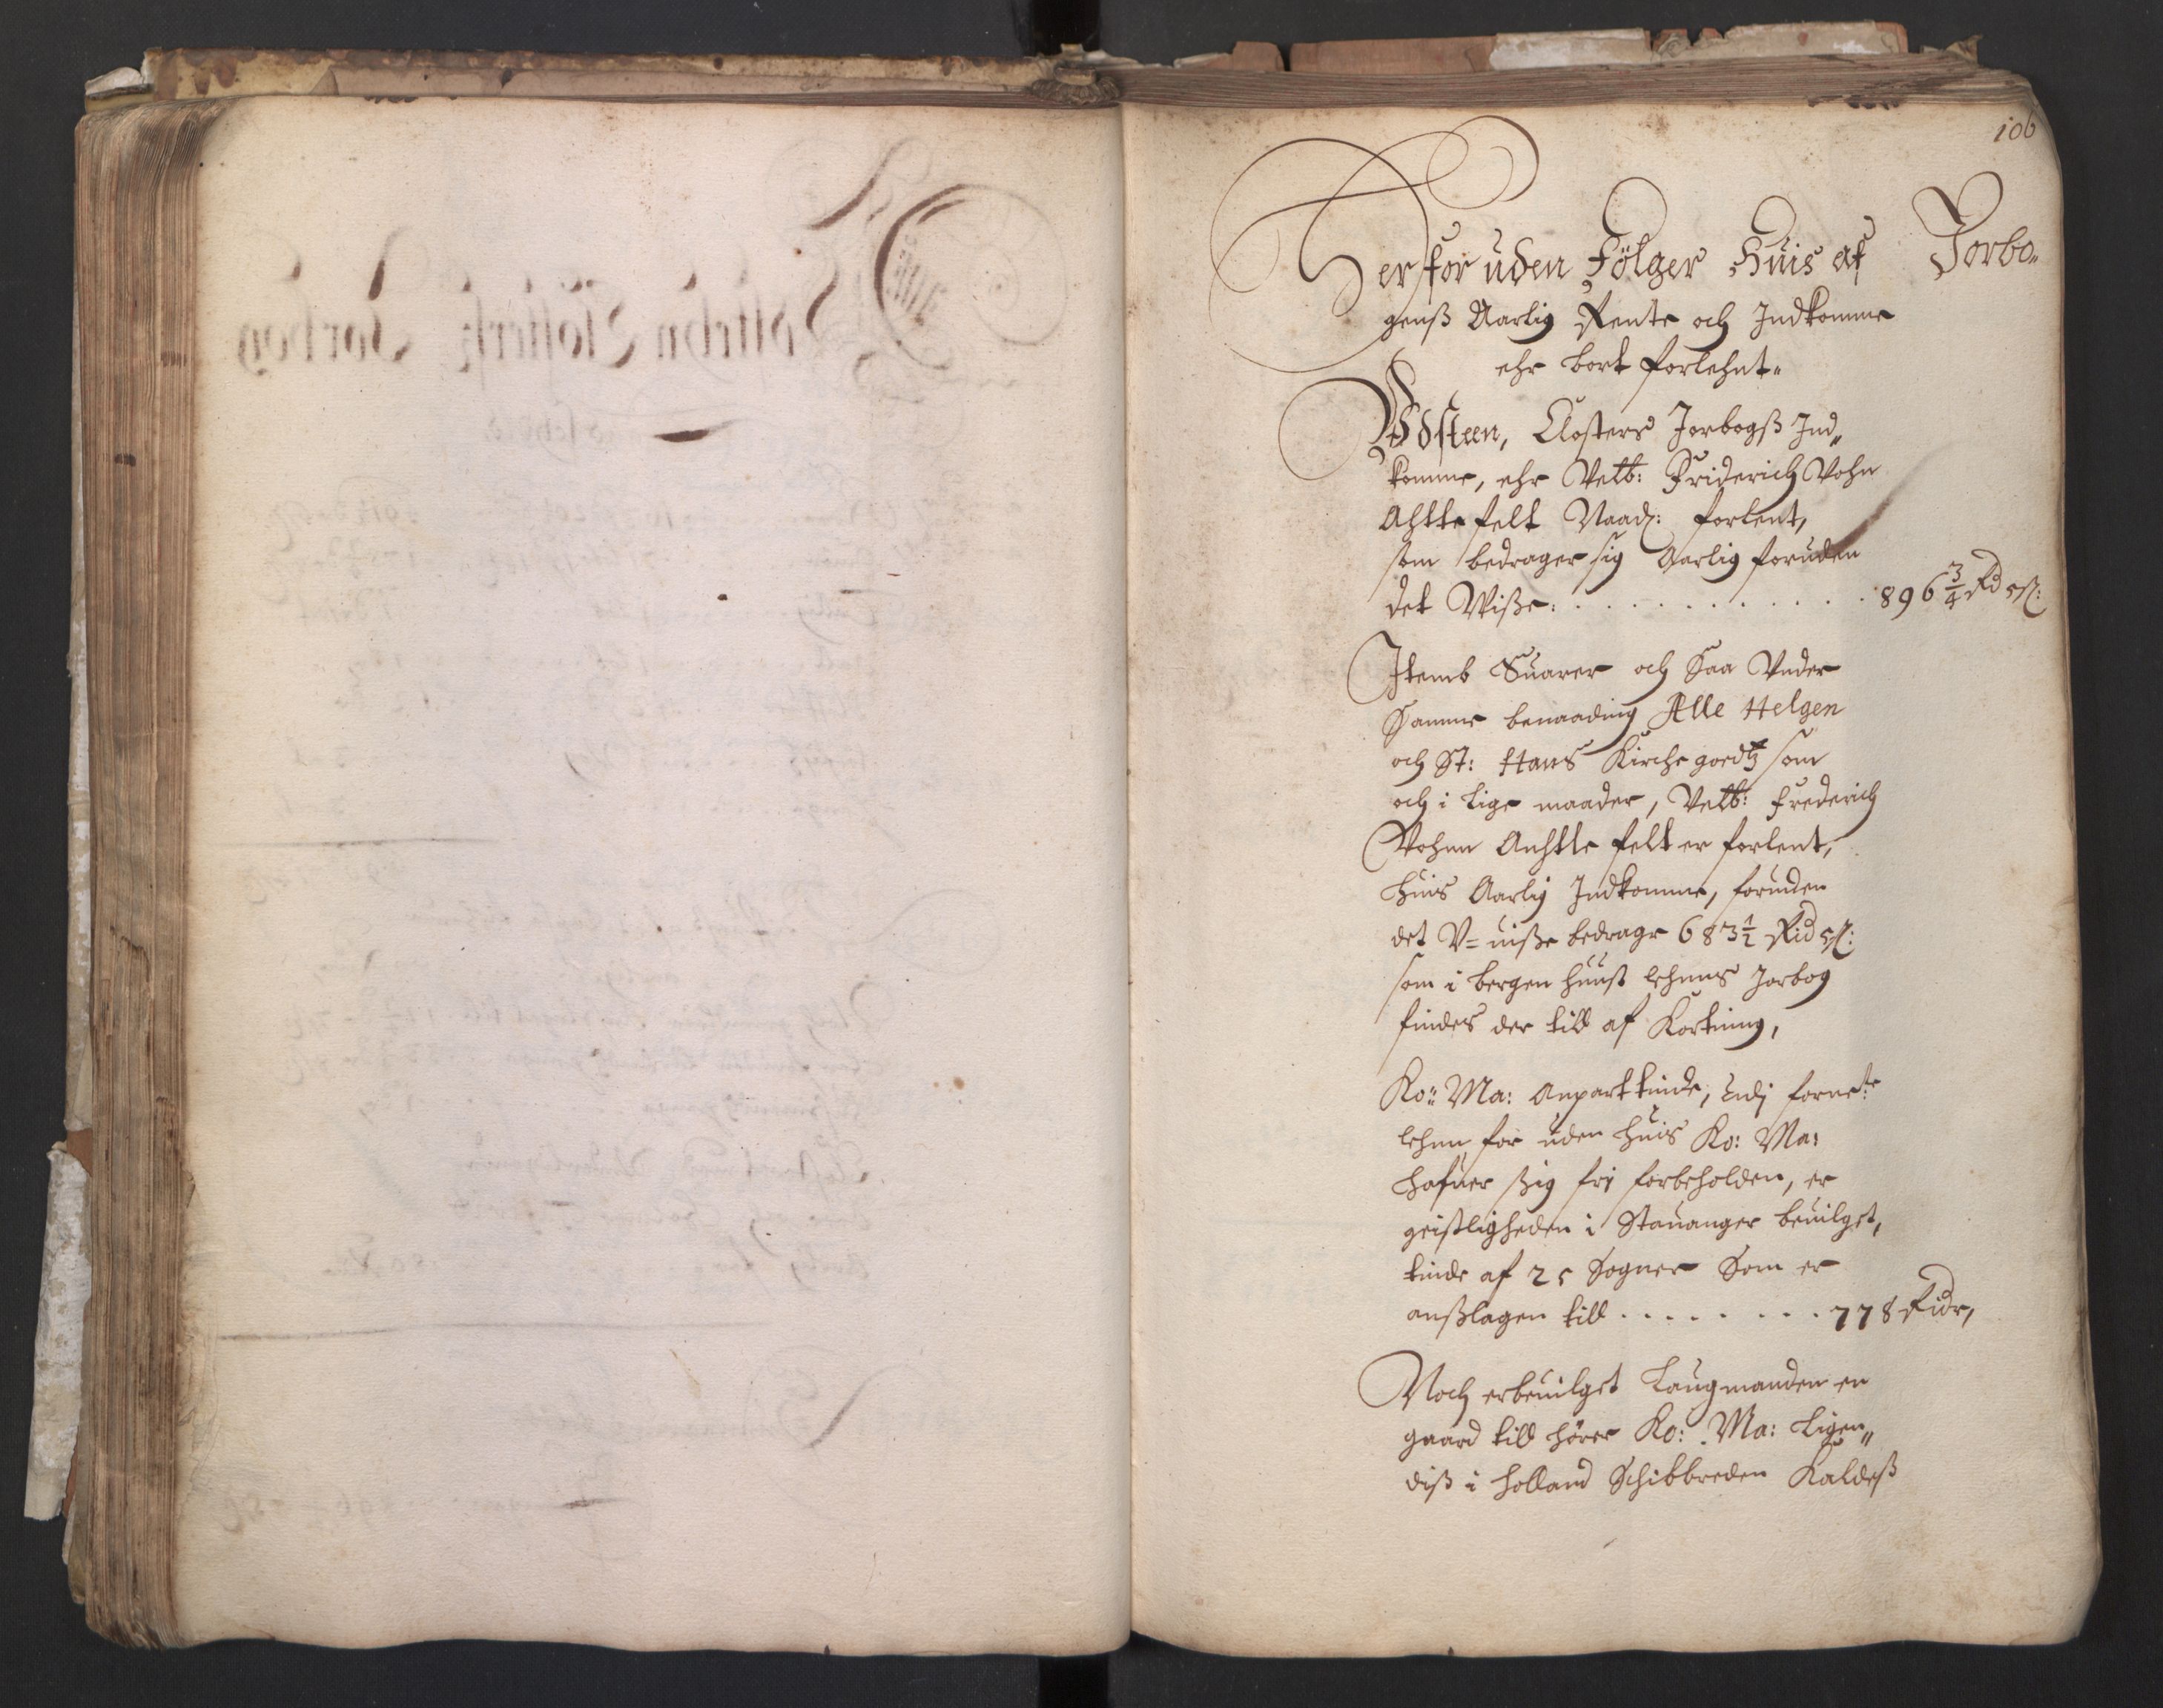 106
Herforuden Fölger Huis af Jorbo„
genß Aarlig Rente och Indkomme
ehr bort forlehnt„
Wdsteen, Closters Jorbogß Ind„
komme, ehr Velb: Friderich Vohn
Ahtte felt Naad: forlent,
som bedrager sig Aarlig foruden
det Wiße: . . . . . . . . . . . 896 3/4 Rd
Itemb Suarer och Saa Vnder
Samme benaading Alle Helgen
och St: Hans Kirche goedtz som
och i lige maader, Velb: Frederich
Vohnn Anhtte felt er forlent,
huis Aarlig Indkomme, foruden
det V= uiße bedrager 683 1/2 Rid
som i bergen huuß lehnns Jorbog
findes der till af Kortning,
Ko: Ma: Anpart tinde, udj fornete
lehnn for uden huis Ko: Ma:
hafuer ßig fri forbeholden, er
geistligheden i Stauanger beuilget,
tinde af 25 Sogner Som er
anßlagen till . . . . . . . . 778 Ridr,
Noch erbeuilget Laugmanden en
gaard till hörer Ko: Ma: Ligen„
diß i holland Schibbreden Kaldeß